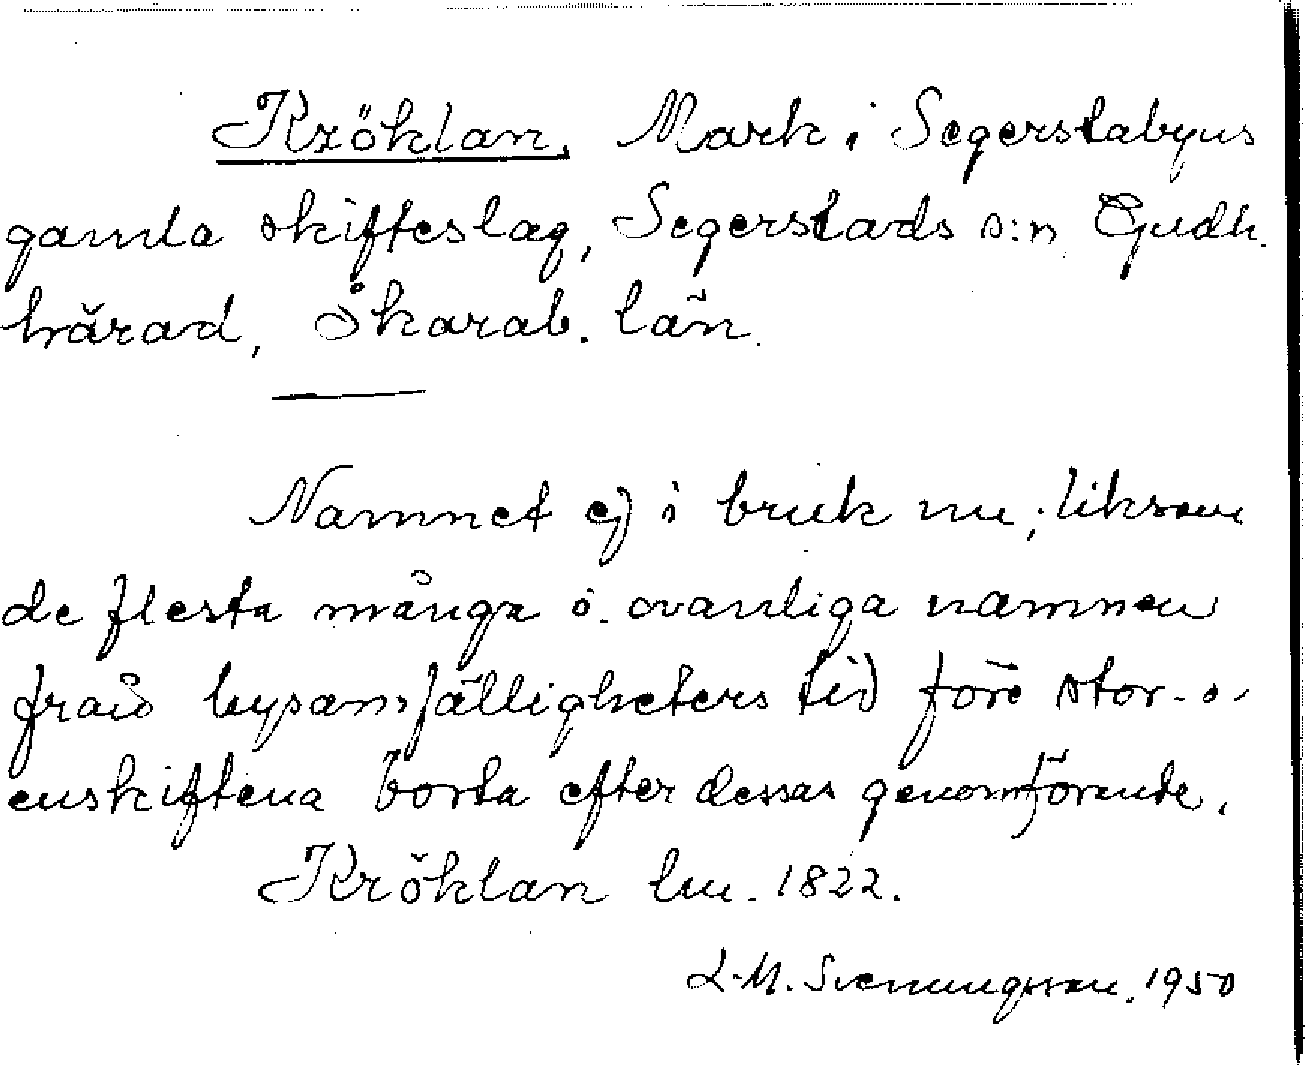 Kröklan, Mark i Segerstabyns
gamla skifteslag, Segerstads s:n Gudh.
härad, Skarab. län.
Namnet ej i bruk nu, liksom
de flesta många o. ovanliga namnen
från bysamfälligheters tid före stor- o.
enskiftena borta efter dessas genomförande.
Kröklan lm. 1822.
L. M. Svenungsson, 1950